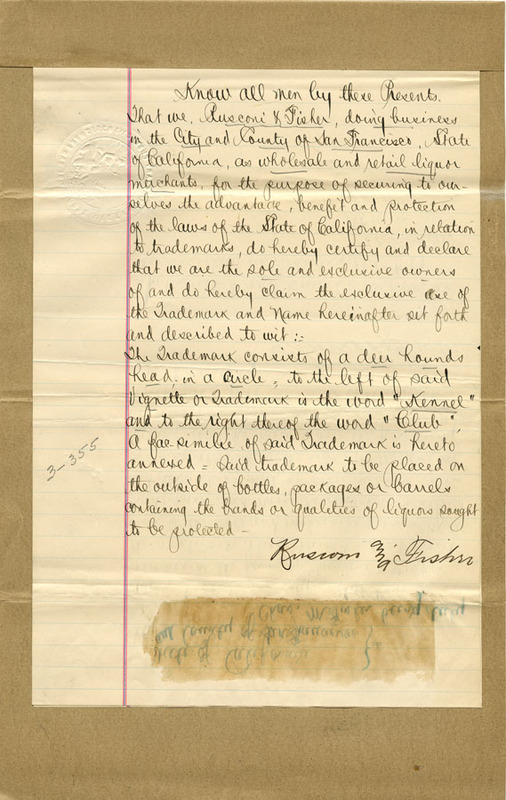 Know all men by these Presents.
That we, Rusconi & Fisher, doing business
in the City and County of San Francisco, State
of California, as wholesale and retail liquor
merchants, for the purpose of securing to our-
selves the advantage, benefit and protection
of the laws of the State of California, in relation
to trademarks, do hereby certify and declare
that we are the sole and exclusive owners
of and do hereby claim the exclusive use of
the Trademark and Name hereinafter set forth
and described to wit:-
The Trademark consists of a deer hounds
head, in a circle, to the left of said
Vignette or Trademark is the word "Kennel"
and to the right thereof the word "Club".
A fac-similie of said Trademark is hereto
annexed = Said trademark to be placed on
the outside of bottles, packages or barrels
containing the bands or qualities of liquors sought
to be protected -
Rusconi & Fisher
3-355
State of California
County of San Francisco